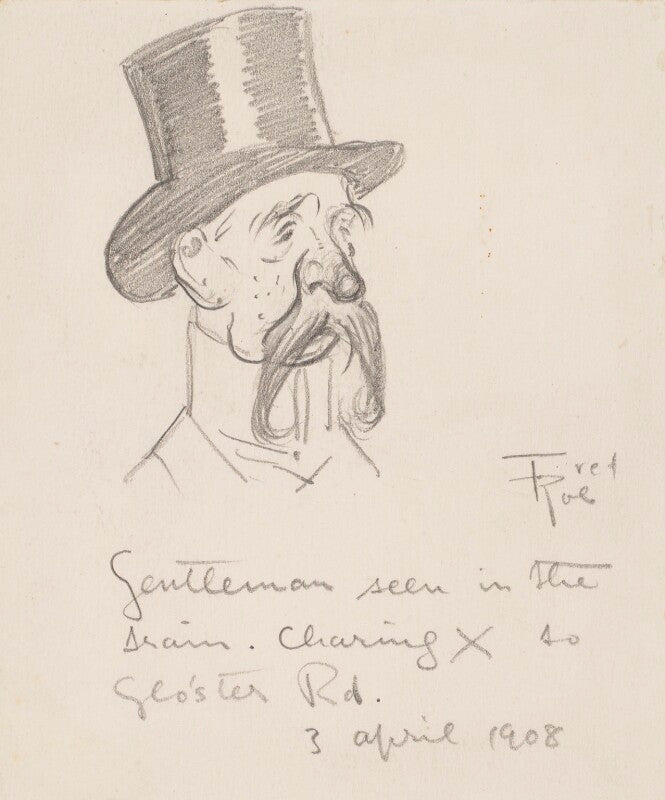 Fred
Roe
Gentleman seen in the
train. Charing X to
Glo'ster Rd.
3 april 1908